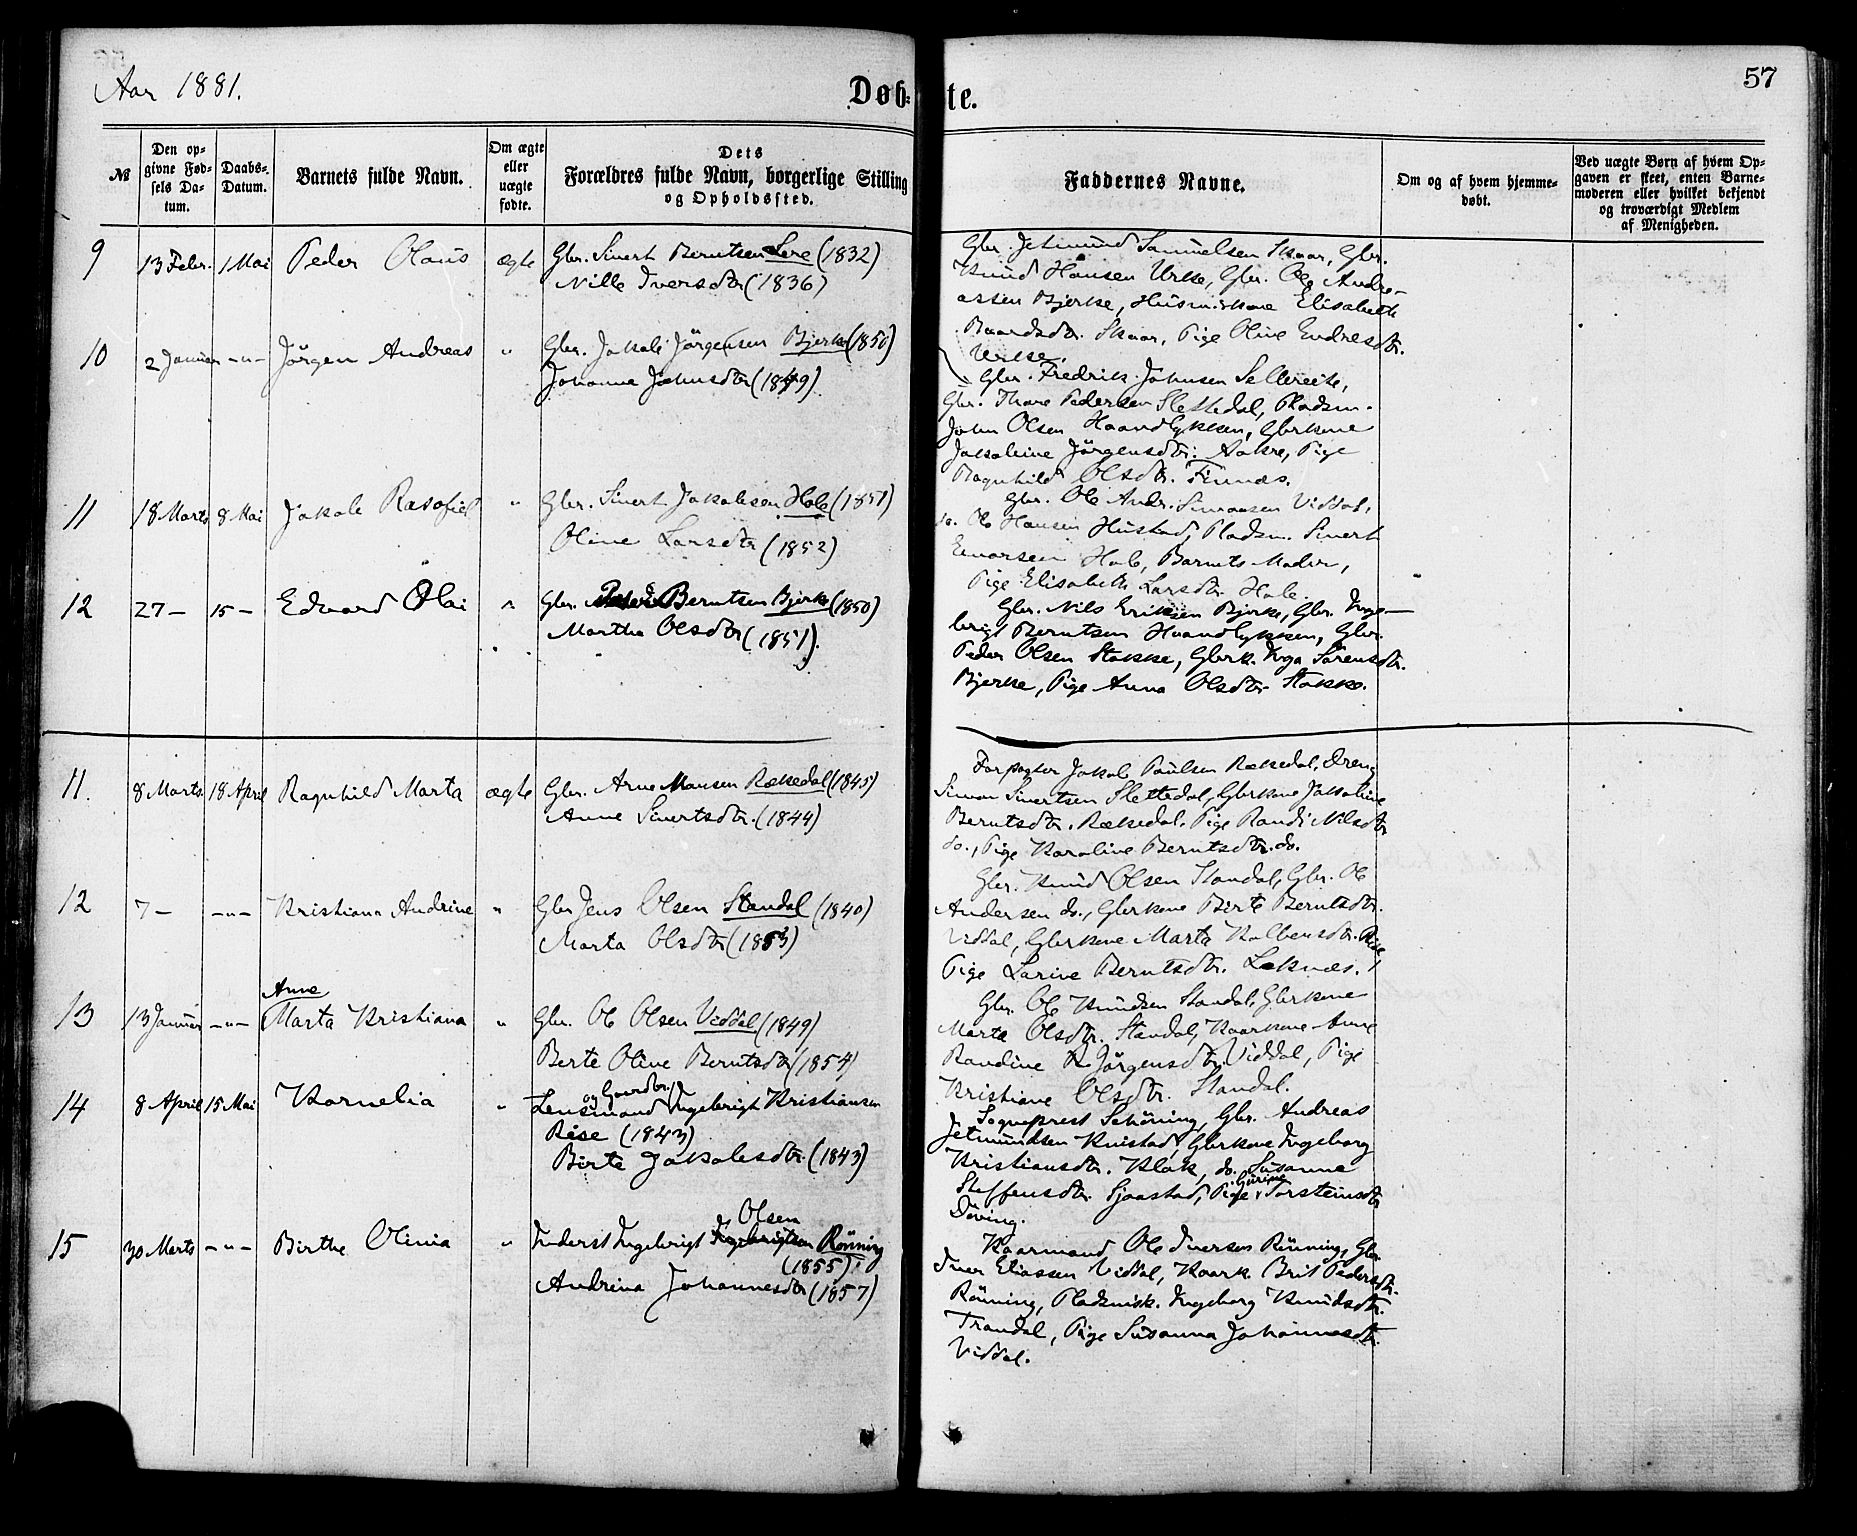 Aar 1881.
Døb- te.
57
№
Den op-
givne Fød-
sels Da-
tum.
Daabs-
Datum.
Barnets fulde Navn.
Om ægte
eller
uægte
fødte.
Dets
Forældres fulde Navn, borgerlige Stilling
og Opholdssted.
Faddernes Navne.
Om og af hvem hjemme-
døbt.
Ved uægte Børn af hvem Op-
gaven er skeet, enten Barne-
moderen eller hvilket bekjendt
og troværdigt Medlem
af Menigheden.
9 13 Febr. 1 Mai Peder Olaus ægte Gbr. Sivert Berntsen (1832)
Nille Iversdtr (1836)
Gbr. Jetmund Samuelsen Skaar, Gbr.
Knud Hansen Urke, Gbr. Ole Andre-
assen Bjerke, Elisabeth
Baardsdtr. Skaar, Pige Oline Endresdtr.
Urke.
10 2 Januar -"- Jørgen Andreas " Gbr. Jakob Jørgensen Bjerke (1850)
Johanne Johnsdtr (1849).
Gbr. Fredrik Johnsen Sellereite,
Gbr. Thore Pedersen Slettedal, Pladsm.
John Olsen Haandlykken, Gbrkone
Jakobine Jørgensdtr. Aakre, Pige
Ragnhild Olsdtr. Finnæs.
11 18 Marts 8 Mai Jakob Rasofiel " Gbr. Sivert Jakobsen Hole (1851)
Oline Larsdtr (1852)
Gbr. Ole Andr. Simonsen Viddal,
do. Ole Hansen Hustad, Pladsm. Sivert
Hole, Barnets Moder,
Pige Elisabeth Larsdtr. Hole.
12 27 - 15 - Edvard Olai " Gbr. Berntsen Bjerke (1850)
Marthe Olsdtr (1851).
Gbr. Nils Eriksen Bjerke, Gbr. Inge-
brigt Berntsen Haandlykken, Gbr.
Peder Olsen Stokke, Gbrk. Inga Sørensdtr.
Bjerke, Pige Anna Olsdtr. Stokke.
11. 8 Marts 18 April Ragnhild Marta ægte Gbr. Arne Monsen Rækedal (1845)
Anne Sivertsdtr. (1844)
Forpagter Jakob Paulsen Rekedal, Dreng
Simon Sivertsen Slettedal, Gbrkone Jakobine
Berntsdtr. Rækedal, Pige Randi Nilsdtr
do., Pige Karoline Berntsdtr. do.
12 7 - -"- Kristiana Andrine " Gbr Jens Olsen Standal (1840)
Marta Olsdtr (1853)
Gbr. Knud Olsen Standal, Gbr. Ole
Andersen do., Gbrkone Birte Berntsdtr.
Viddal, Gbrkone Marta Kolbensdtr.
Pige Larine Berntsdtr. Leknæs.
Anne
13 13 Januar -"- Marta Kristiana " Gbr. Ole Olsen Viddal (1849)
Berte Oline Berntsdtr (1854)
Gbr. Ole Knudsen Standal, Gbrkone
Marta Olsdtr. Standal, Kaarkone Anne
Randine K. Jørgensdtr. Viddal, Pige
Kristiane Olsdtr. Standal.
og Gaardbr.
14 8 April 15 Mai Kornelia " Lensmand Ingebrigt Kristiansen
Rise (1843)
Birte Jakobsdtr. (1843)
Sogneprest Schöning, Gbr. Andreas
Jetmundsen Knistad, Gbrkone Ingeborg
Kristiansdtr. Klok, do. Susanne
Steffensdtr. Sjaastad, Pige Gurine Torsteinsdtr
Døving.
Olsen
15 30 Marts -"- Birthe Olinia " Inderst Ingebrigt Ingebrigtsen Rönning
(1855)
Andrina Johannesdtr (1857)
Kaarmand Ole Iversen Rönning, Gbr
Iver Eliassen Viddal, Kaark. Brit Pedersdtr.
Rönning, Pladsmsk. Ingeborg Knudsdtr.
Trandal, Pige Susanna Johannesdtr.
Viddal.